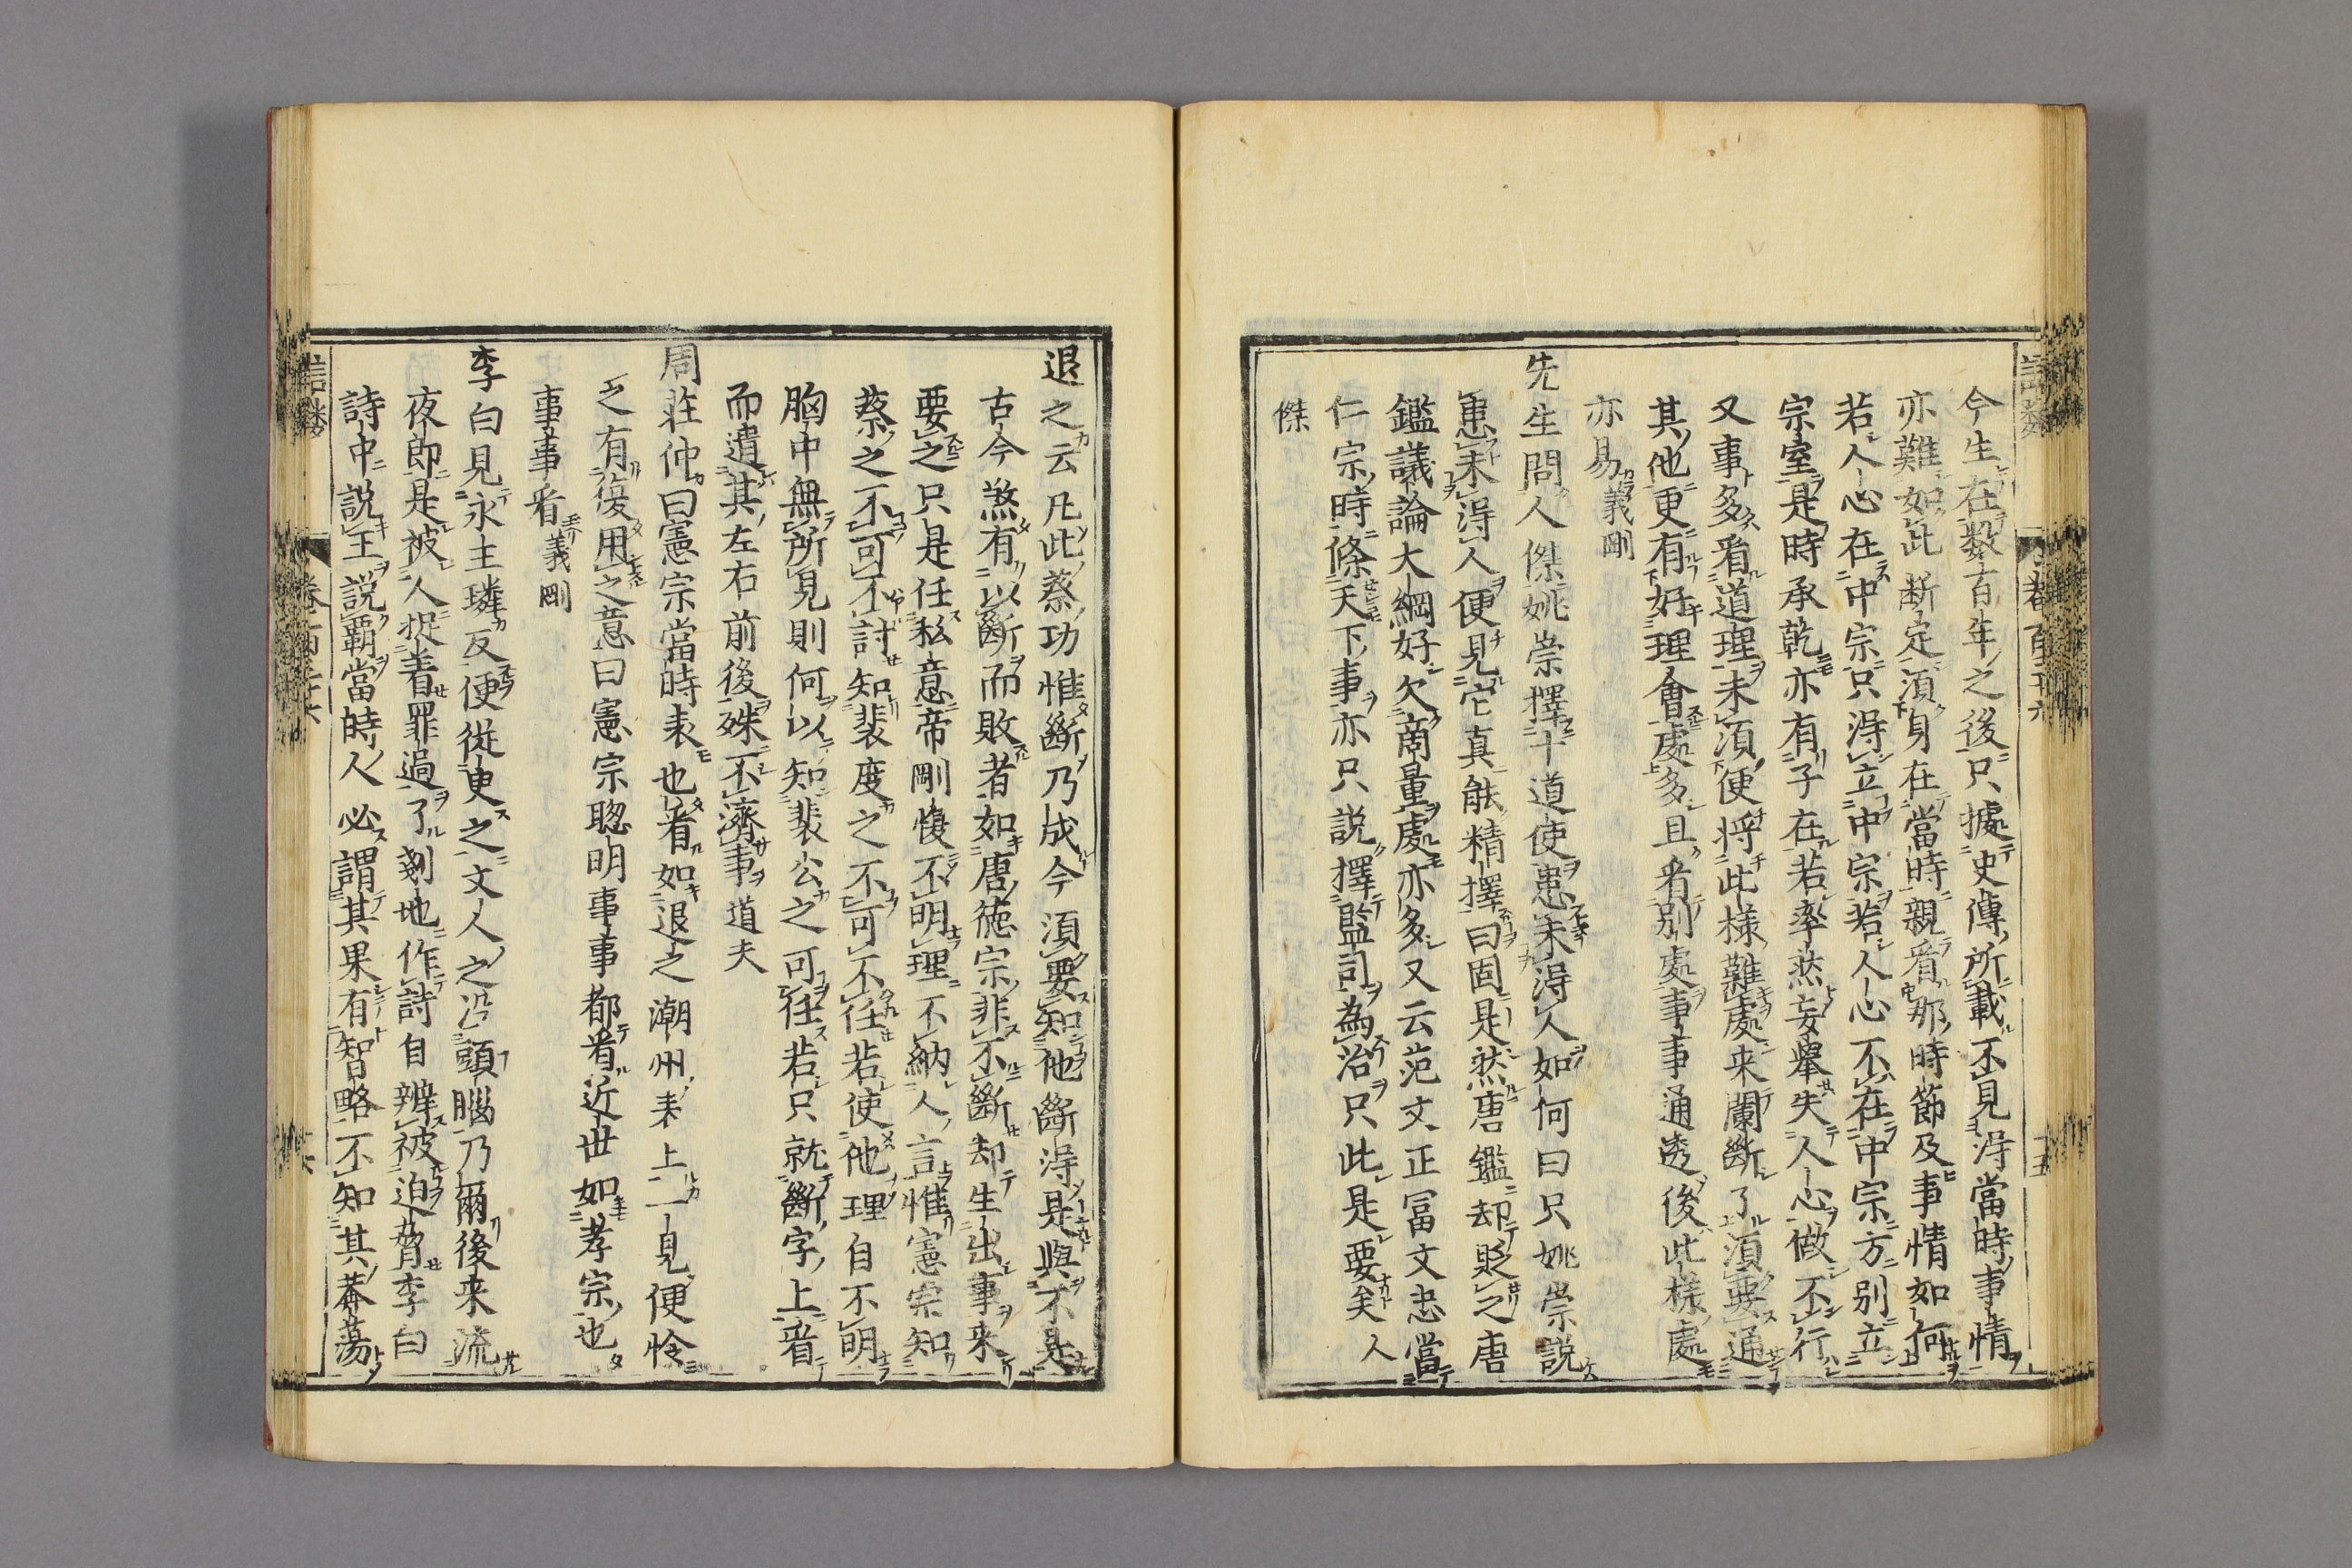 今生在数百年之後只據史傳所載不見得當時事情
亦難如此断定須身在當時親看那時節及事情如何
若人心在中宗只得立中宗若人心不在中宗方別立
宗室是時承乾亦有子在若率然妄舉失人心做不行
又事多看道理未須便將此樣難處来闌斷了須要通
其他更有好理會處多且看別處事事通透後此樣處
亦易義剛
先生問人傑姚崇擇十道使患未得人如何曰只姚崇說
患未得人便見它真能精擇曰固是然唐鑑却貶之唐
鑑議論大綱好欠商量處亦多又云范文正冨文忠當
仁宗時條天下事亦只說擇監司為治只此是要矣人
傑
退之云凡此蔡功惟斷乃成今須要知他斷得是與不是
古今煞有以斷而敗者如唐德宗非不斷却生出事来
要之只是任私意帝剛愎不明理不納人言惟憲宗知
蔡之不可不討知裴度之不可不任若使他理自不明
胸中無所見則何以知裴公之可任若只就斷字上看
而遺其左右前後殊不濟事道夫
周莊仲曰憲宗當時表也看如退之潮州表上一見便怜
之有復用之意曰憲宗聦明事事都看近世如孝宗也
事事看義剛
李白見永王璘反便從臾之文人之没頭腦乃爾後来流
夜郎是被人捉着罪過了剗地作詩自辨被迫脅李白
詩中說王說霸當時人必謂其果有智略不知其莽蕩